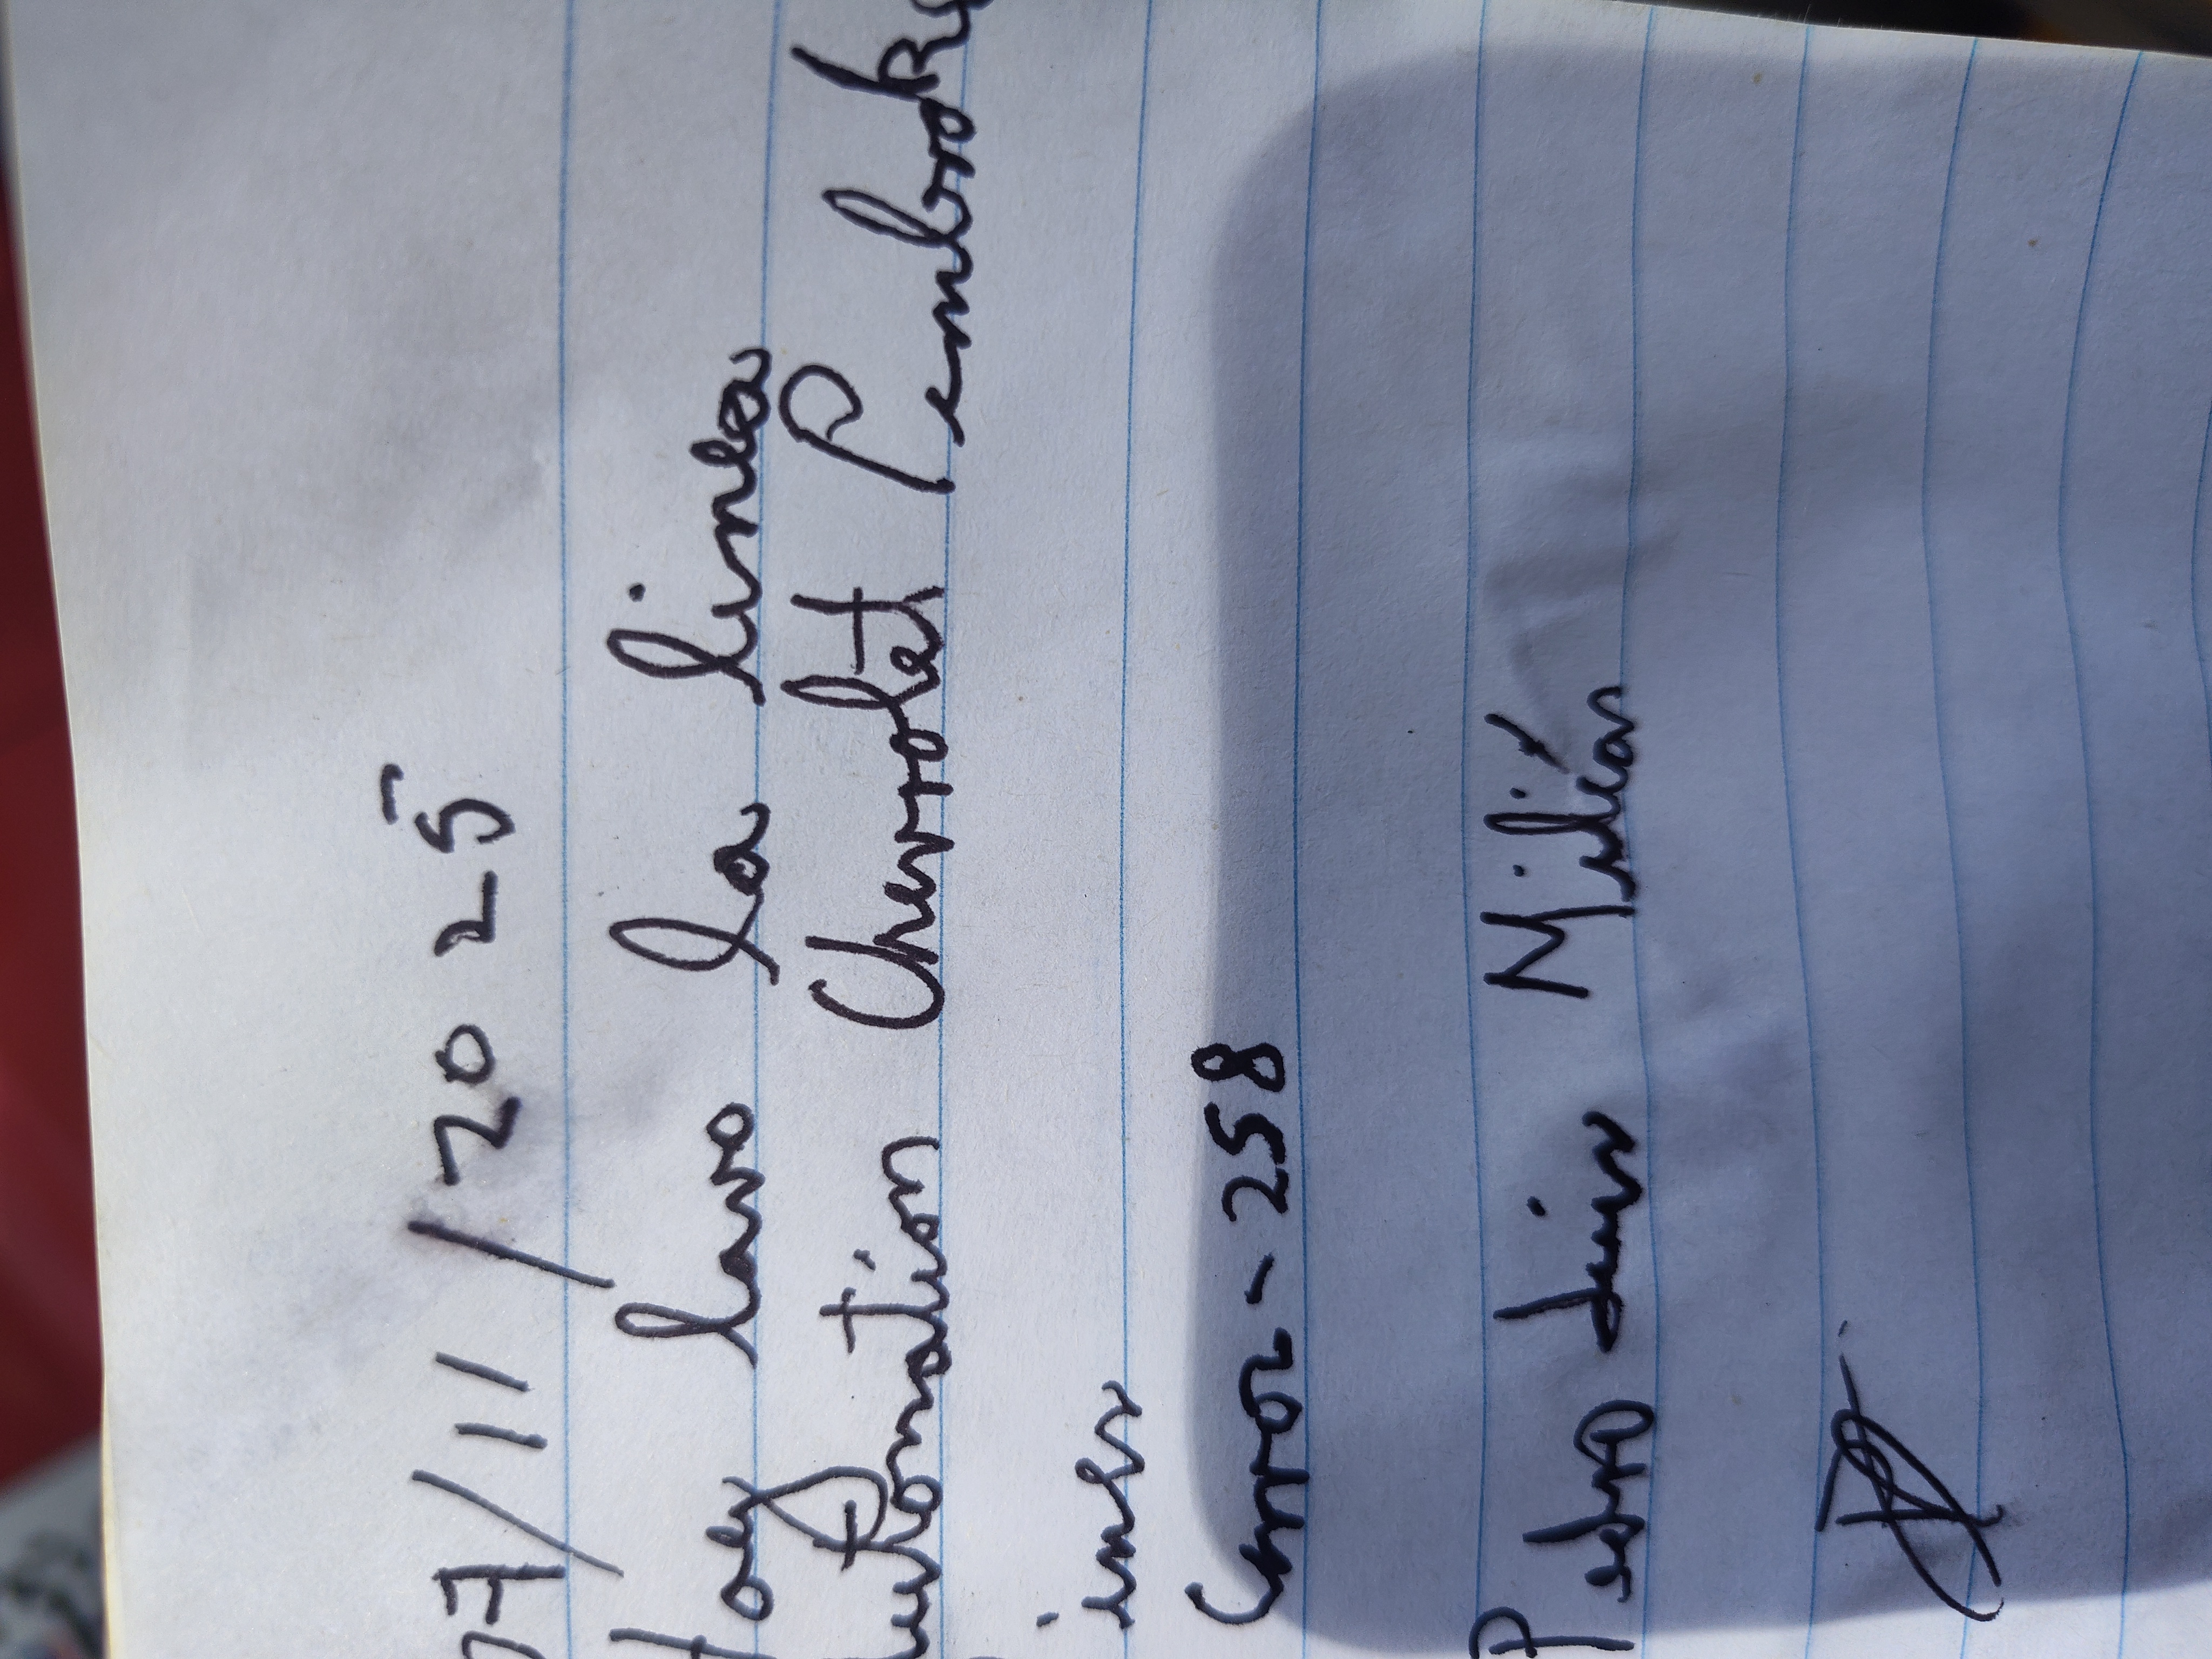 07/11/2025
Hoy lavo la linea
Automation Chevrolet Pembroke
ines
Carro - 258
Pedro Luis Milián